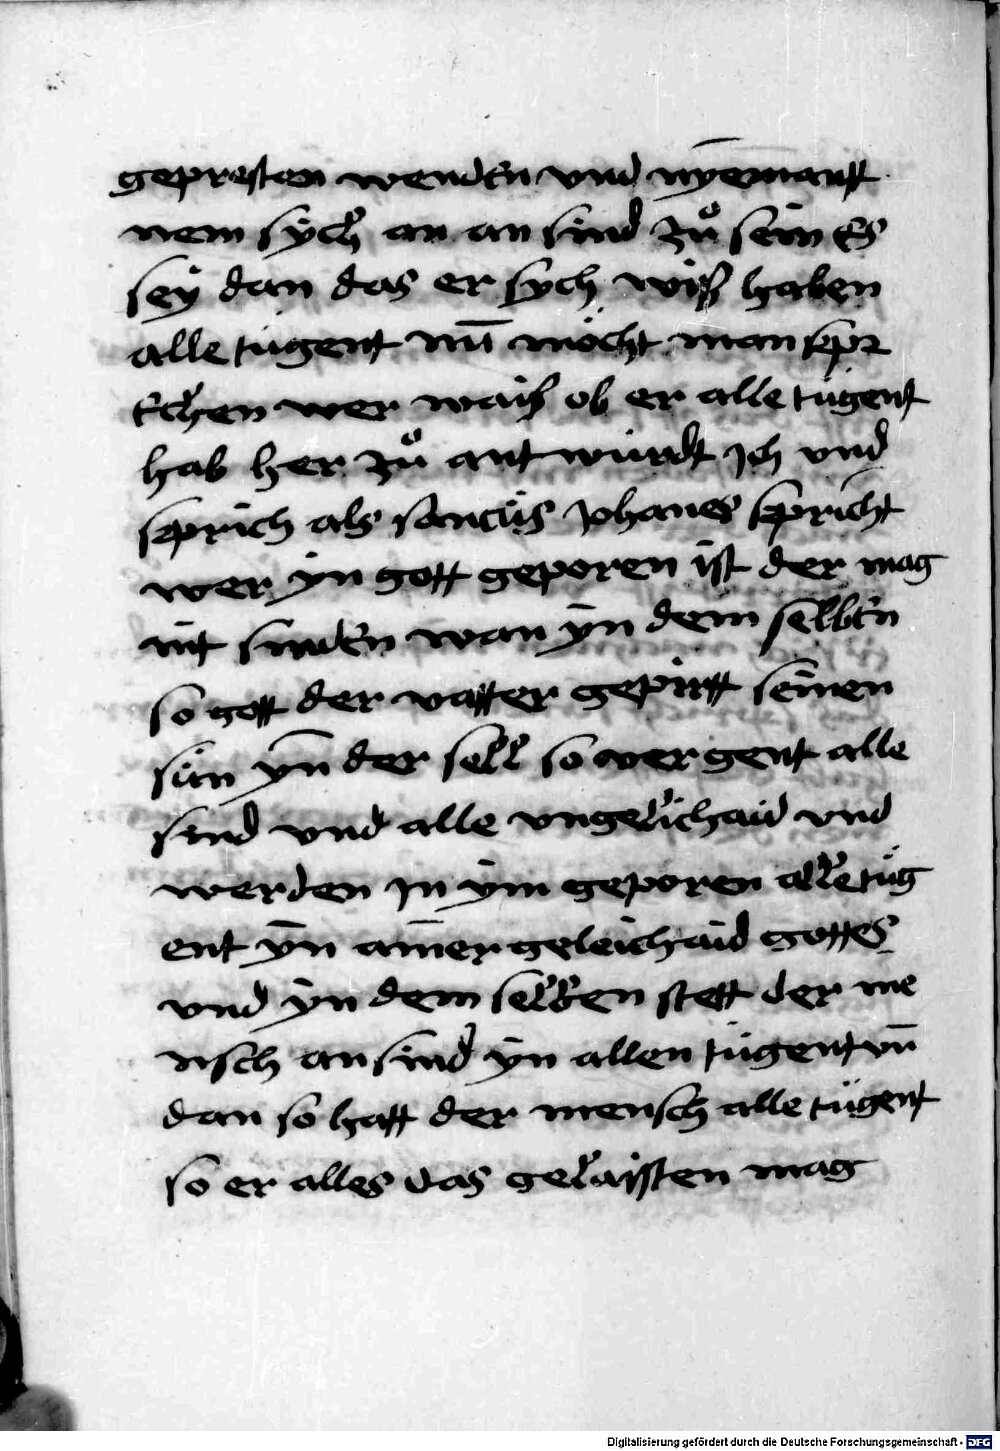 gepresten wenden vnd nÿemantt
nem sÿch an an sind zů sein Es
seÿ dan das er sych wiß haben
alle tugent nū möcht man spr
echen wer waiß ob er alle tugent
hab her zů ant wurdt Jch vnd
sprich als sanctus Johanes spricht
wer ÿn gott geporen ist der mag
nit sunden wan ÿn dem selben
so gott der vatter gepirtt seinen
sun ÿn der sell so vergent alle
sind vnd alle vngelichaid vnd
werden Jn ÿm geporen alle tug
ent ÿn ainer geleichaid gottes
vnd ÿn dem selben stett der me
nsch an sind ÿn allen tugent vn̄
dan so hatt der mensch alle tugent
so er alles das gelaisten mag
Digitalisierung gefördert durch die Deutsche Forschungsgemeinschaft - DFG